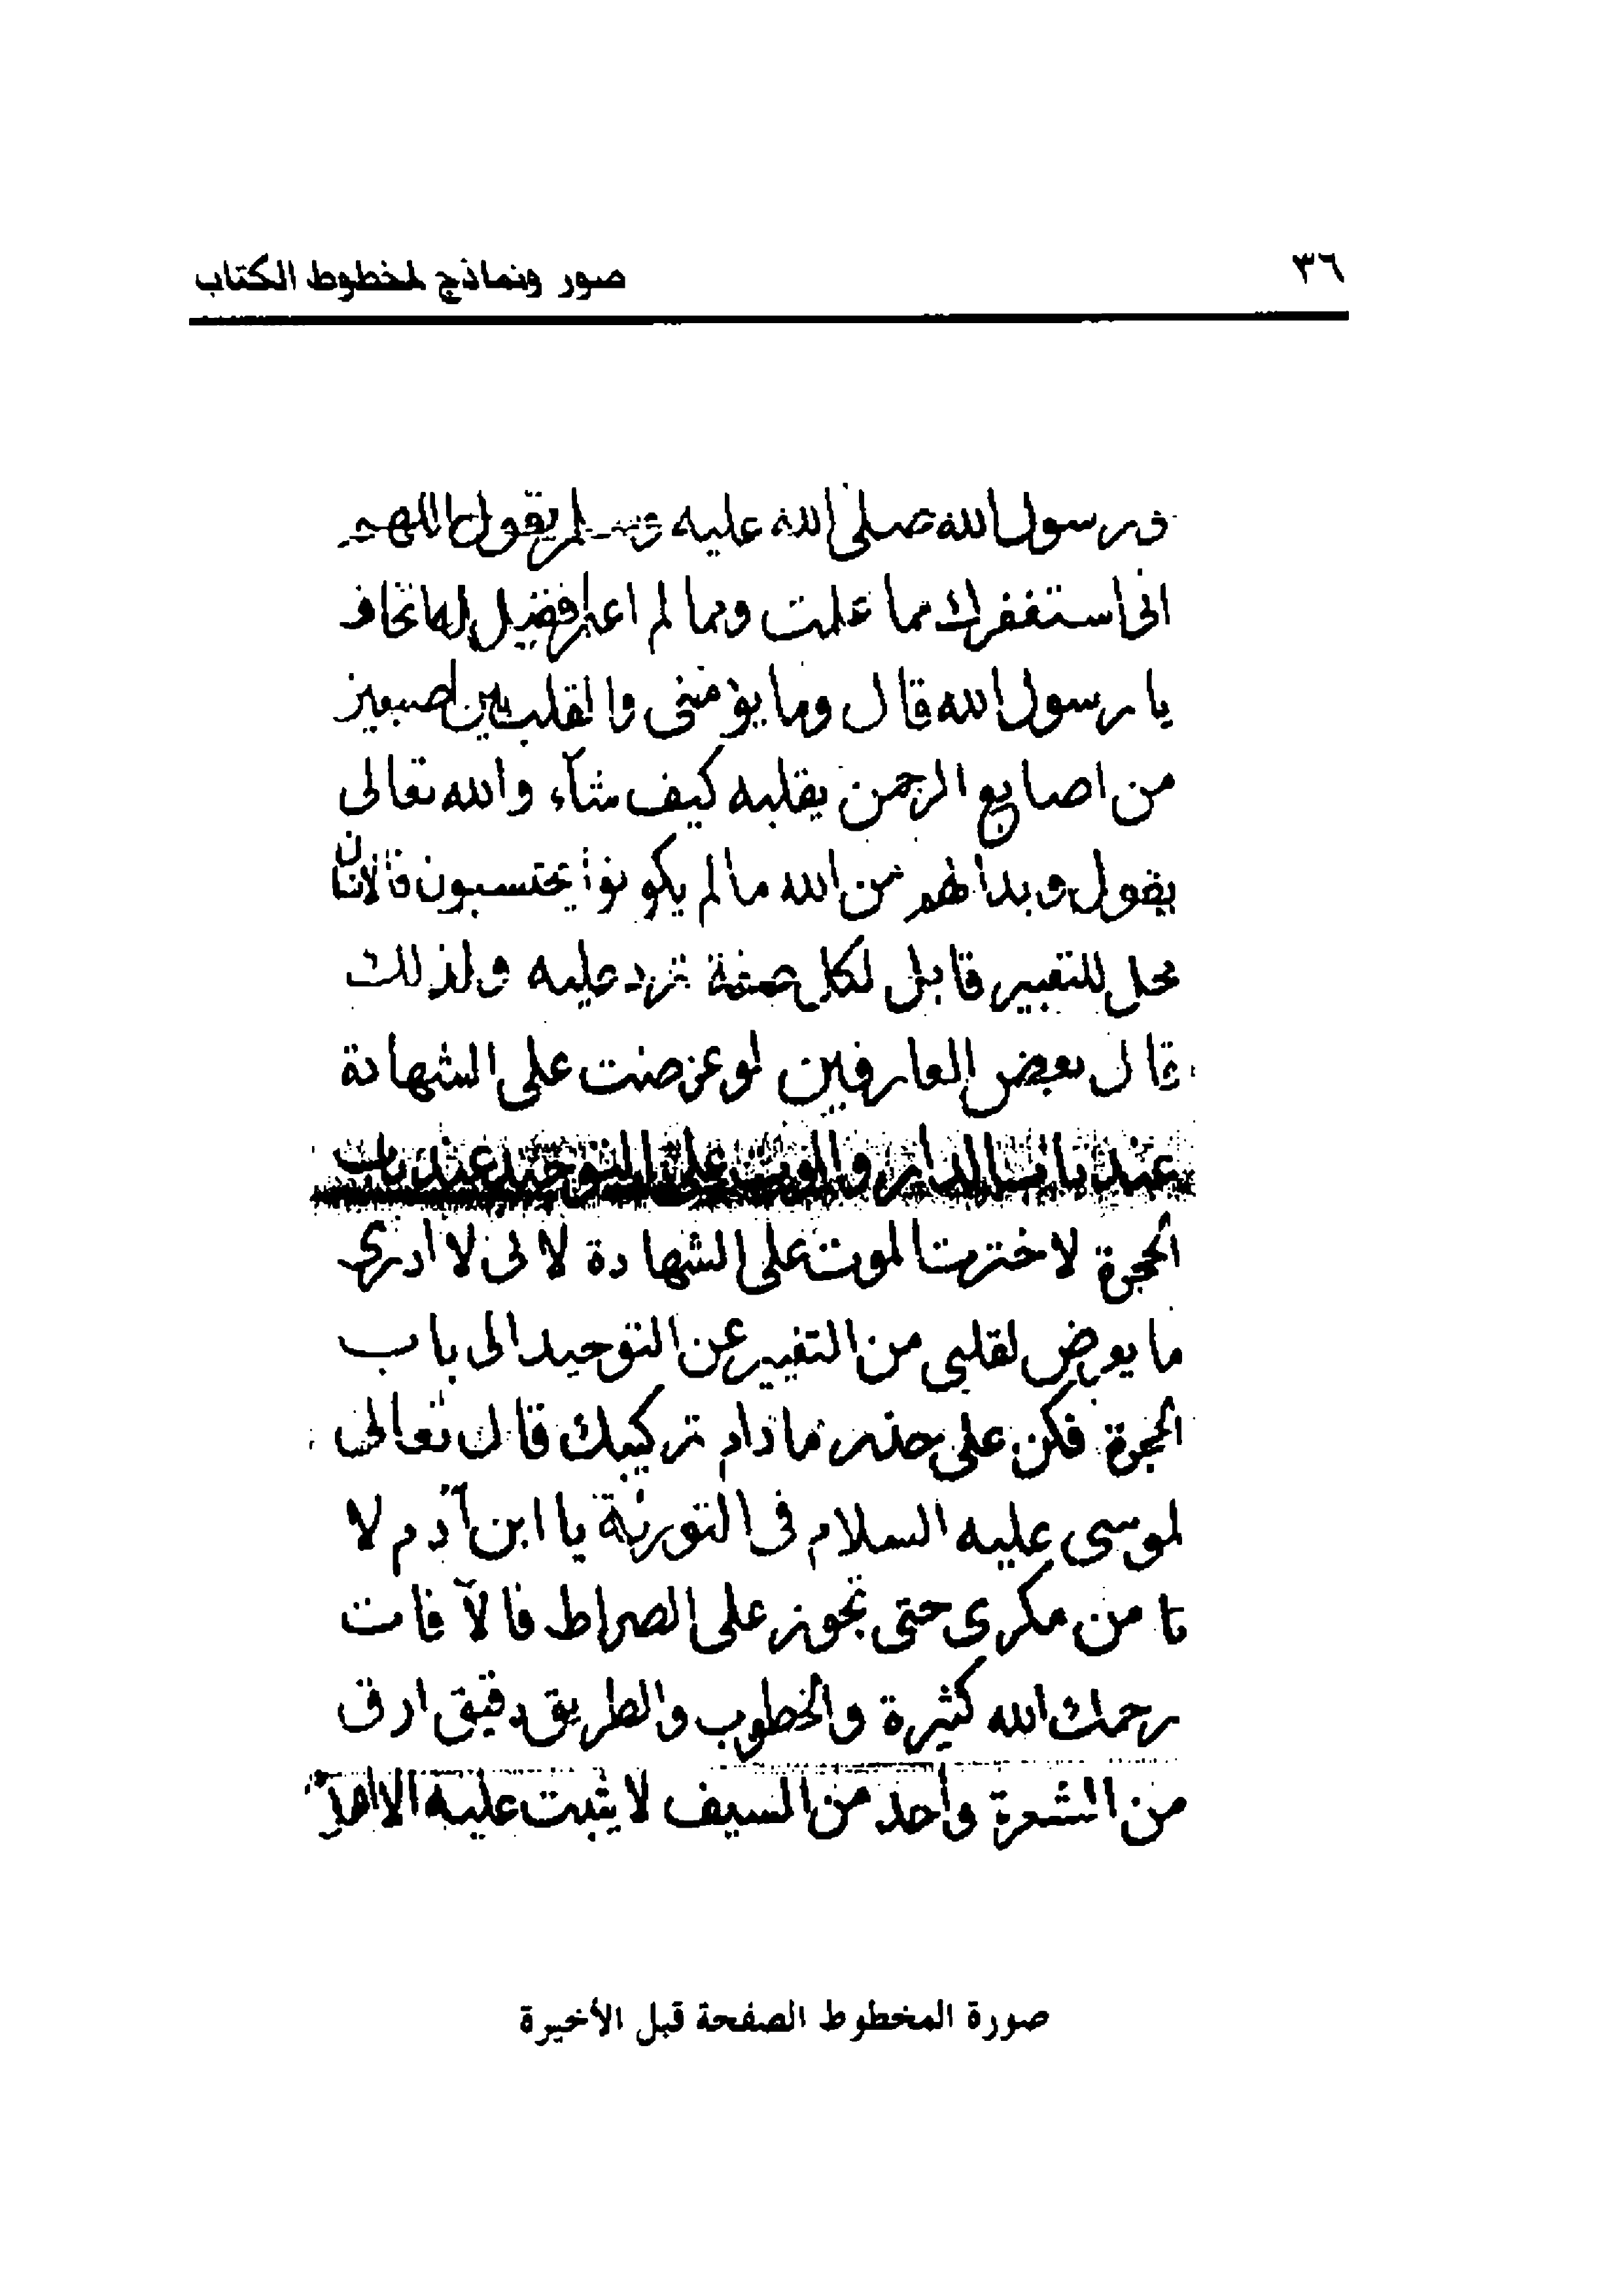 ٣٦
صور ونماذج لمخطوط الكتاب
ورسول الله صلى الله عليه وسلم يقول اللهم
انى استغفرك مما علمت ومما لم اعلم فقيل له اتخاف
يا رسول الله قال وما يؤمننى والقلب بين اصبعين
من اصابع الرحمن يقلبه كيف شآء والله تعالى
يقول وبدا لهم من الله ما لم يكونوا يحتسبون فالانسان
محل للتغيير قابل لكل صفة ترد عليه ولذلك
قال بعض العارفين لو عرضت على الشهادة
عند باب الدار والموت على التوحيد عند باب
الحجرة لاخترت الموت على الشهادة لانى لا ادرى
ما يعرض لقلبى من التغيير عن التوحيد الى باب
الحجرة فكن على حذر ما دام تركيبك قال تعالى
لموسى عليه السلام فى التورية يا ابن آدم لا
تا من مكرى حتى تجوز على الصراط فالآفات
رحمك الله كثيرة والخطوب والطريق دقيق ارق
من الشعرة واحد من السيف لا يثبت عليه الا اهل
صورة المخطوط الصفحة قبل الأخيرة